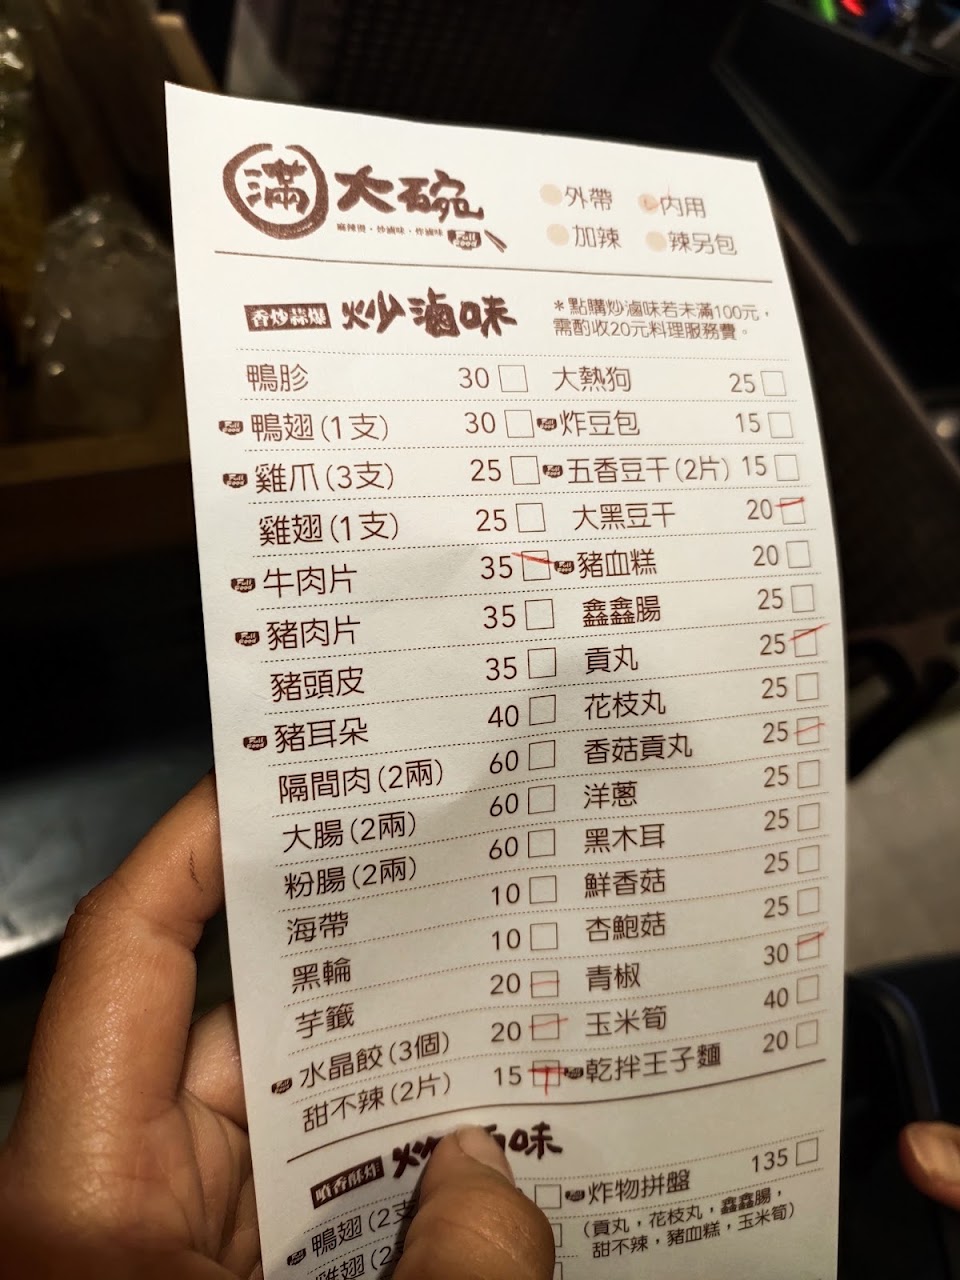 滿大碗
麻辣燙・炒滷味・炸滷味
Full Food
外帶 內用
加辣 辣另包
香炒蒜爆 炒滷味
＊點購炒滷味若未滿100元，
需酌收20元料理服務費。
鴨胗 30 大熱狗 25
鴨翅(1支) 30 炸豆包 15
雞爪(3支) 25 五香豆干(2片) 15
雞翅(1支) 25 大黑豆干 20
牛肉片 35 豬血糕 20
豬肉片 35 鑫鑫腸 25
豬頭皮 35 貢丸 25
豬耳朵 40 花枝丸 25
隔間肉(2兩) 60 香菇貢丸 25
大腸(2兩) 60 洋蔥 25
粉腸(2兩) 60 黑木耳 25
海帶 10 鮮香菇 25
黑輪 10 杏鮑菇 25
芋籤 20 青椒 30
水晶餃(3個) 20 玉米筍 40
甜不辣(2片) 15 乾拌王子麵 20
噴香酥炸 炸滷味
鴨翅(2支 炸物拼盤 135
(貢丸，花枝丸，鑫鑫腸，
甜不辣，豬血糕，玉米筍)
雞翅(2